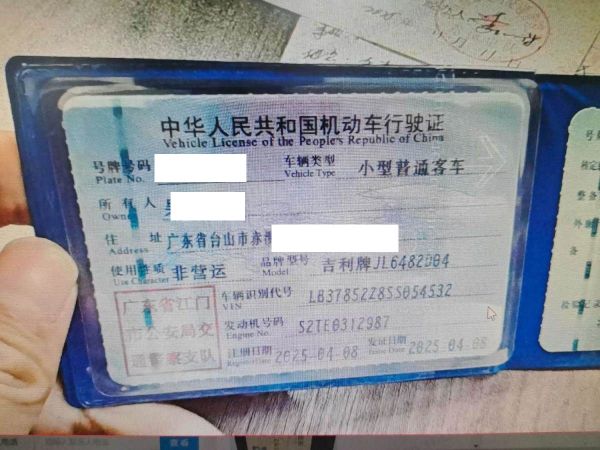 中华人民共和国机动车行驶证
Vehicle License of the People's Republic of China
号牌号码 车辆类型 小型普通客车
Plate No. Vehicle Type
所有人
Owner
住址 广东省台山市赤
Address
使用性质 非营运 品牌型号 吉利牌JL6482D04
Use Character Model
广东省江门 车辆识别代号 LB37852Z8SS054532
VIN
市公安局交 发动机号码 S2TE0312987
Engine No.
通警察支队 注册日期 2025-04-08 发证日期 2025-04-08
Register Date Issue Date
查看